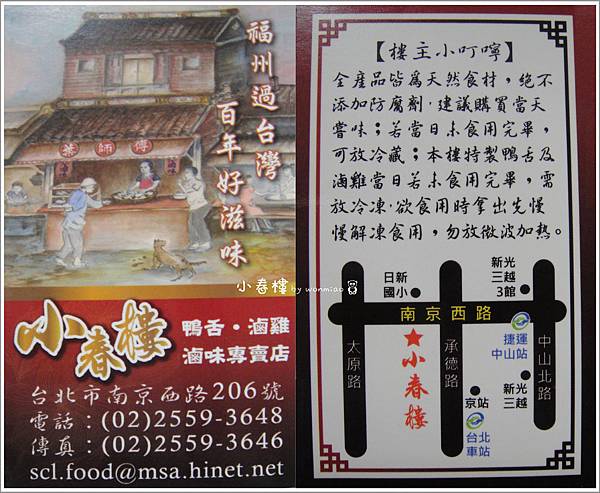 福州過台灣
百年好滋味
葉師傅
小春樓 by wonmiao
小春樓
鴨舌・滷雞
滷味專賣店
台北市南京西路206號
電話：(02)2559-3648
傳真：(02)2559-3646
scl.food@msa.hinet.net
【樓主小叮嚀】
全產品皆為天然食材，絕不
添加防腐劑．建議購買當天
嘗味；若當日未食用完畢，
可放冷藏；本樓特製鴨舌及
滷雞當日若未食用完畢，需
放冷凍．欲食用時拿出先慢
慢解凍食用，勿放微波加熱。
日新
國小
新光
三越
3館
南京西路
捷運
中山站
太原路
小春樓
承德路
中山北路
新光
三越
京站
台北
車站